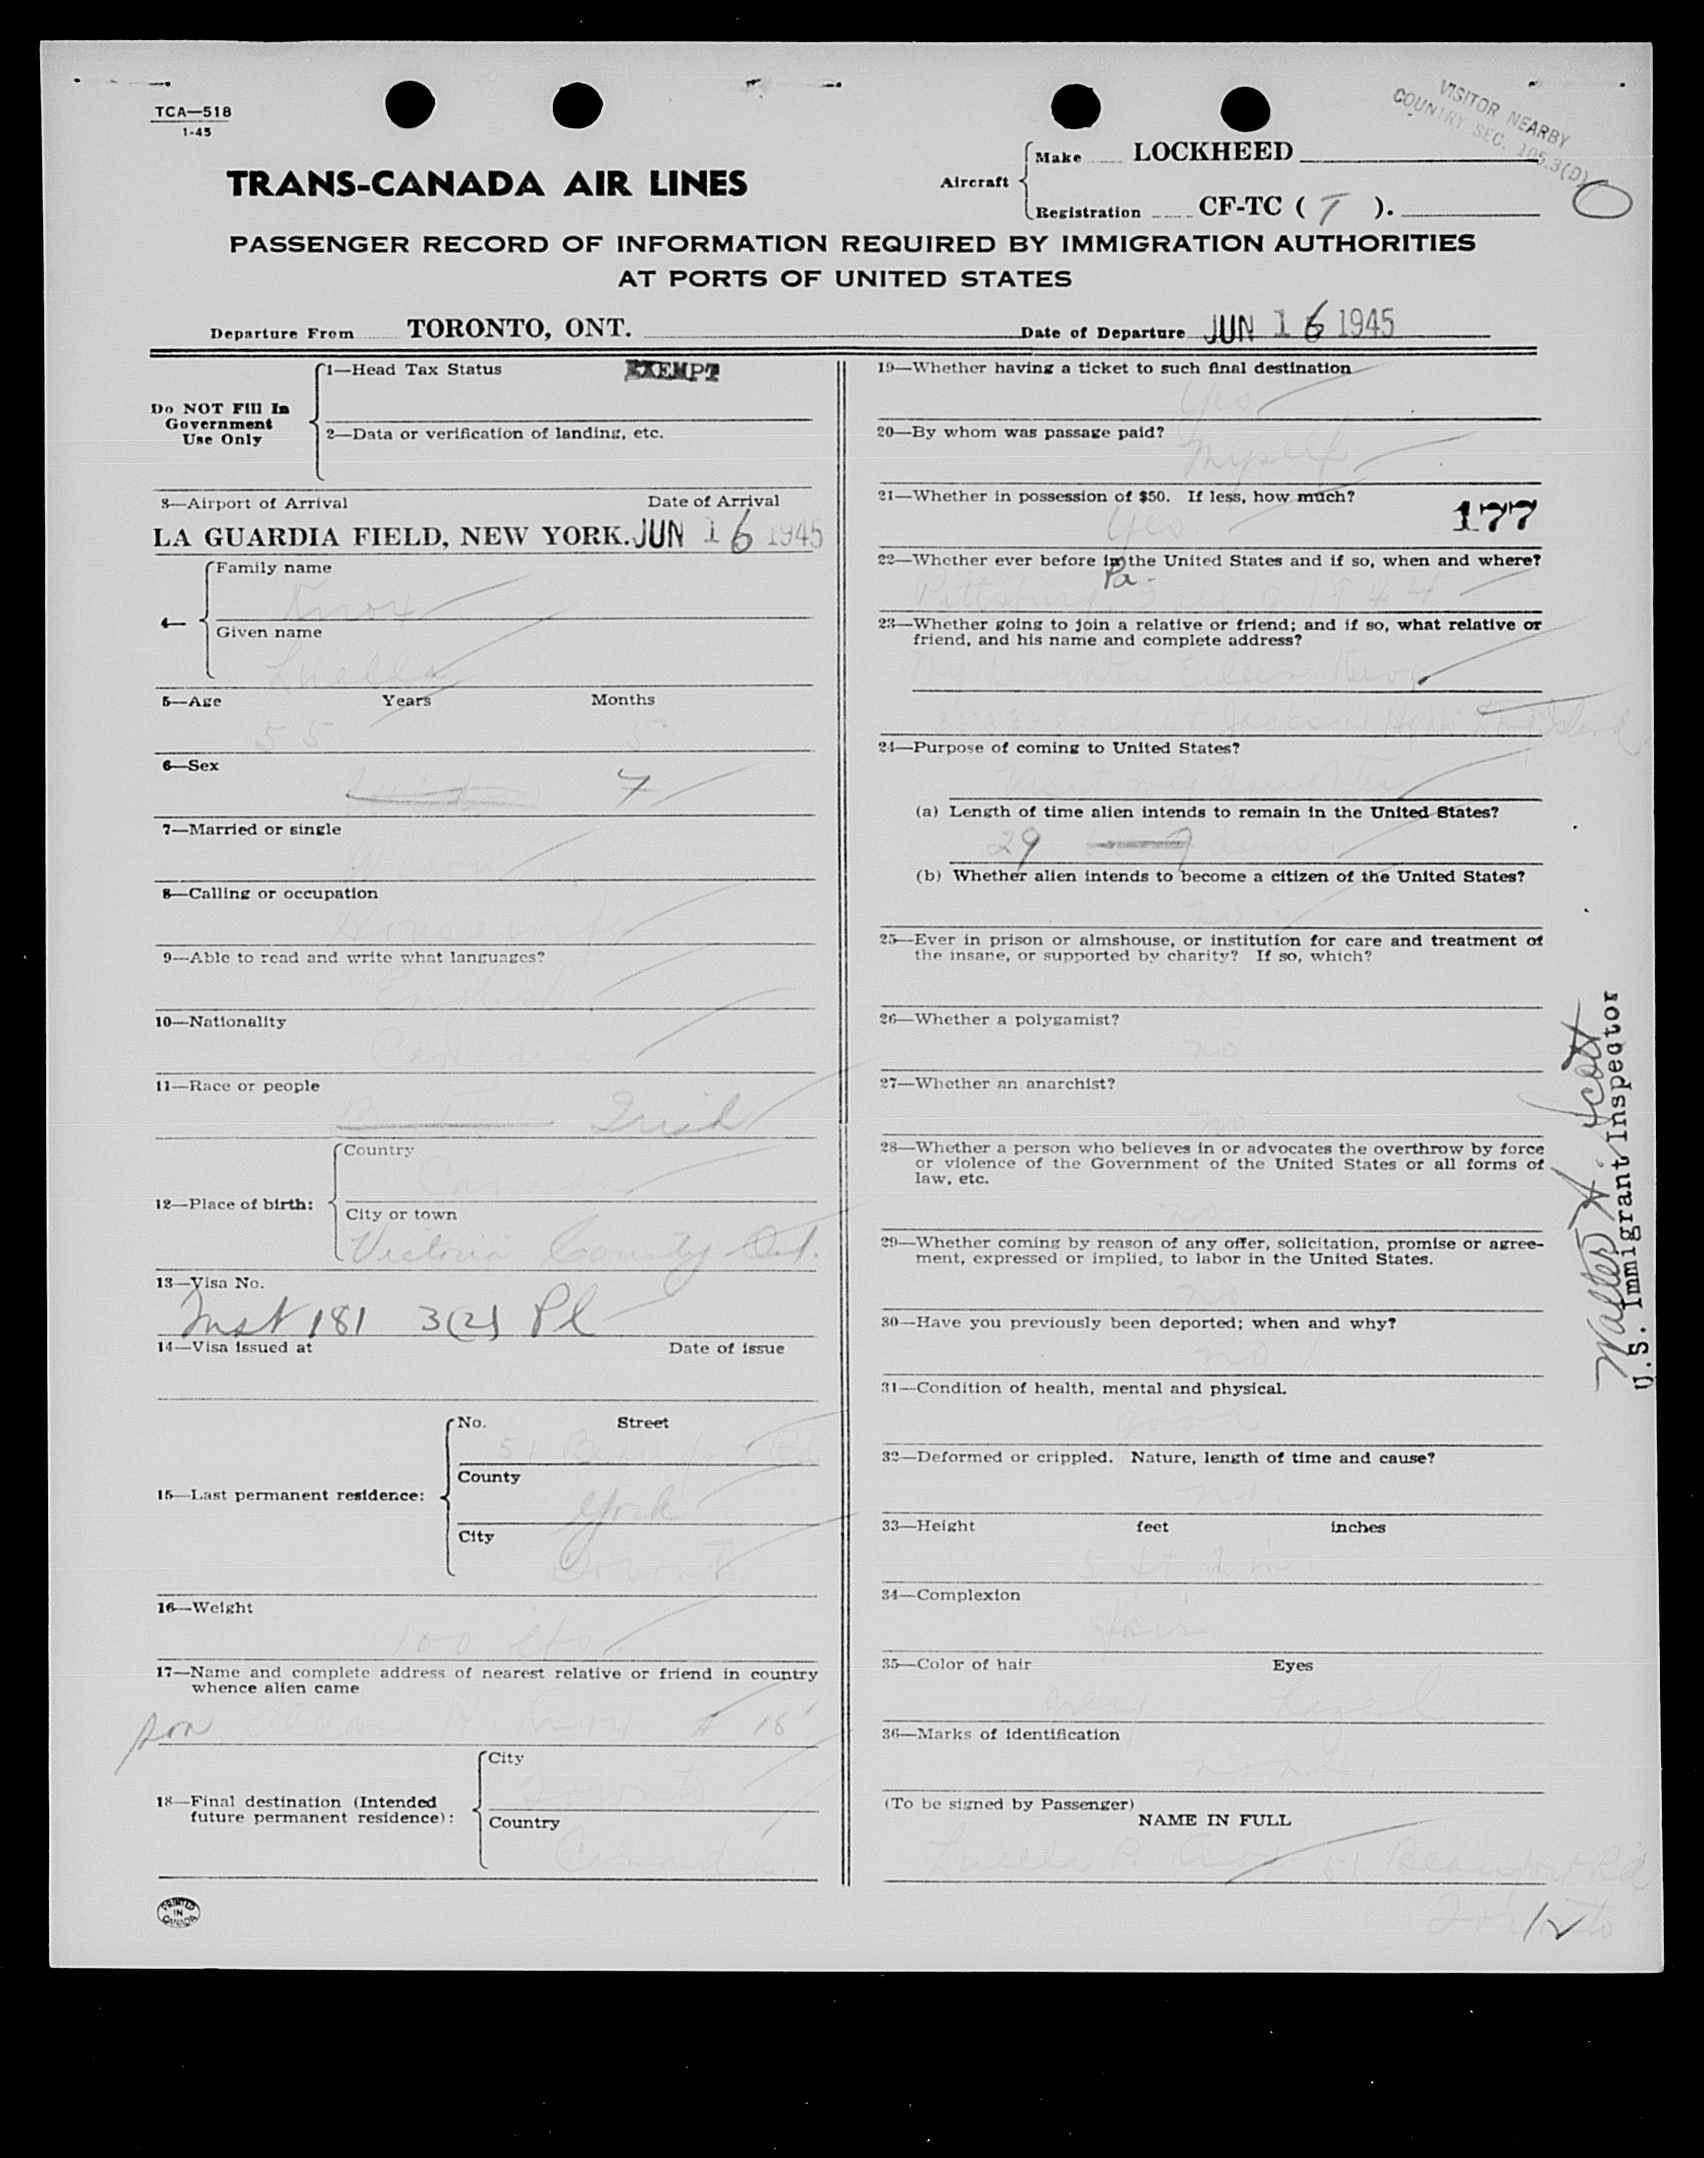 TCA—518
1-45
VISITOR NEARBY
COUNTRY SEC. 105.3(D)
TRANS-CANADA AIR LINES
Aircraft
Make LOCKHEED
Registration CF-TC ( T ).
PASSENGER RECORD OF INFORMATION REQUIRED BY IMMIGRATION AUTHORITIES
AT PORTS OF UNITED STATES
Departure From TORONTO, ONT. Date of Departure JUN 16 1945
Do NOT Fill In
Government
Use Only
1—Head Tax Status EXEMPT
2—Data or verification of landing, etc.
3—Airport of Arrival Date of Arrival
LA GUARDIA FIELD, NEW YORK. JUN 16 1945
4—
Family name
Knox
Given name
Luella
5—Age Years Months
55 5
6—Sex
F
7—Married or single
8—Calling or occupation
Housewife
9—Able to read and write what languages?
English
10—Nationality
Canadian
11—Race or people
Irish
12—Place of birth:
Country
Canada
City or town
Victoria County Ont.
13—Visa No.
Inst 181 3(2) Pl
14—Visa issued at Date of issue
15—Last permanent residence:
No. Street
51 Beaufort Rd
County
York
City
Toronto
16—Weight
100 lbs.
17—Name and complete address of nearest relative or friend in country
whence alien came
son
18—Final destination (Intended
future permanent residence):
City
Toronto
Country
Canada.
PRINTED
IN
CANADA
19—Whether having a ticket to such final destination
Yes
20—By whom was passage paid?
Myself
21—Whether in possession of $50. If less, how much?
Yes
177
22—Whether ever before in the United States and if so, when and where?
Pa.
Pittsburg 1944
23—Whether going to join a relative or friend; and if so, what relative or
friend, and his name and complete address?
My daughter Eileen Knox
Jackson
24—Purpose of coming to United States?
Visit my daughter
(a) Length of time alien intends to remain in the United States?
29 days.
(b) Whether alien intends to become a citizen of the United States?
no.
25—Ever in prison or almshouse, or institution for care and treatment of
the insane, or supported by charity? If so, which?
26—Whether a polygamist?
no
27—Whether an anarchist?
no
28—Whether a person who believes in or advocates the overthrow by force
or violence of the Government of the United States or all forms of
law, etc.
no
29—Whether coming by reason of any offer, solicitation, promise or agree-
ment, expressed or implied, to labor in the United States.
no
30—Have you previously been deported; when and why?
no
31—Condition of health, mental and physical.
good
32—Deformed or crippled. Nature, length of time and cause?
no.
33—Height feet inches
5 ft 2 in.
34—Complexion
fair
35—Color of hair Eyes
grey hazel
36—Marks of identification
none.
(To be signed by Passenger)
NAME IN FULL
Luella P. Knox 51 Beaufort Rd
Toronto
Walter H. Scott
U.S. Immigrant Inspector